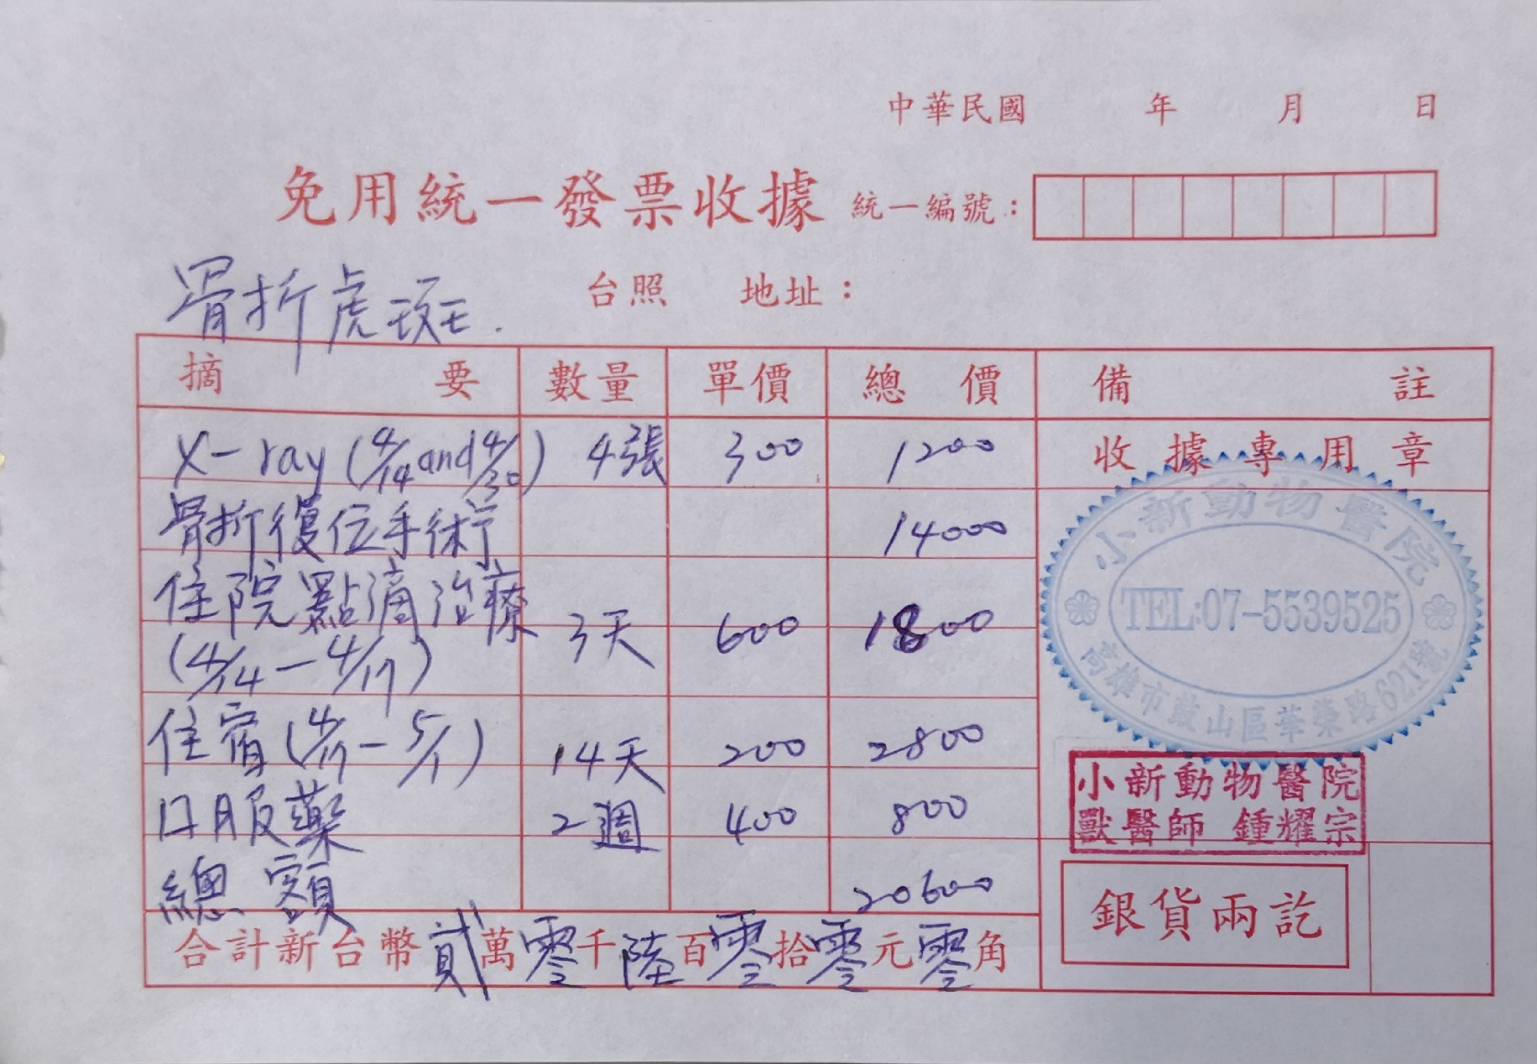 中華民國 年 月 日
免用統一發票收據 統一編號：
骨折虎斑. 台照 地址：
摘 要 數量 單價 總 價 備 註
X-ray (4/14 and 4/30) 4張 300 1200 收據專用章
骨折復位手術 14000
住院點滴治療
(4/14 - 4/17) 3天 600 1800
住宿 (4/17 - 5/1) 14天 200 2800
口服藥 2週 400 800
總額 20600
合計新台幣貳萬零千陸百零拾零元零角
小新動物醫院
TEL:07-5539525
高雄市鼓山區華榮路621號
小新動物醫院
獸醫師 鍾耀宗
銀貨兩訖